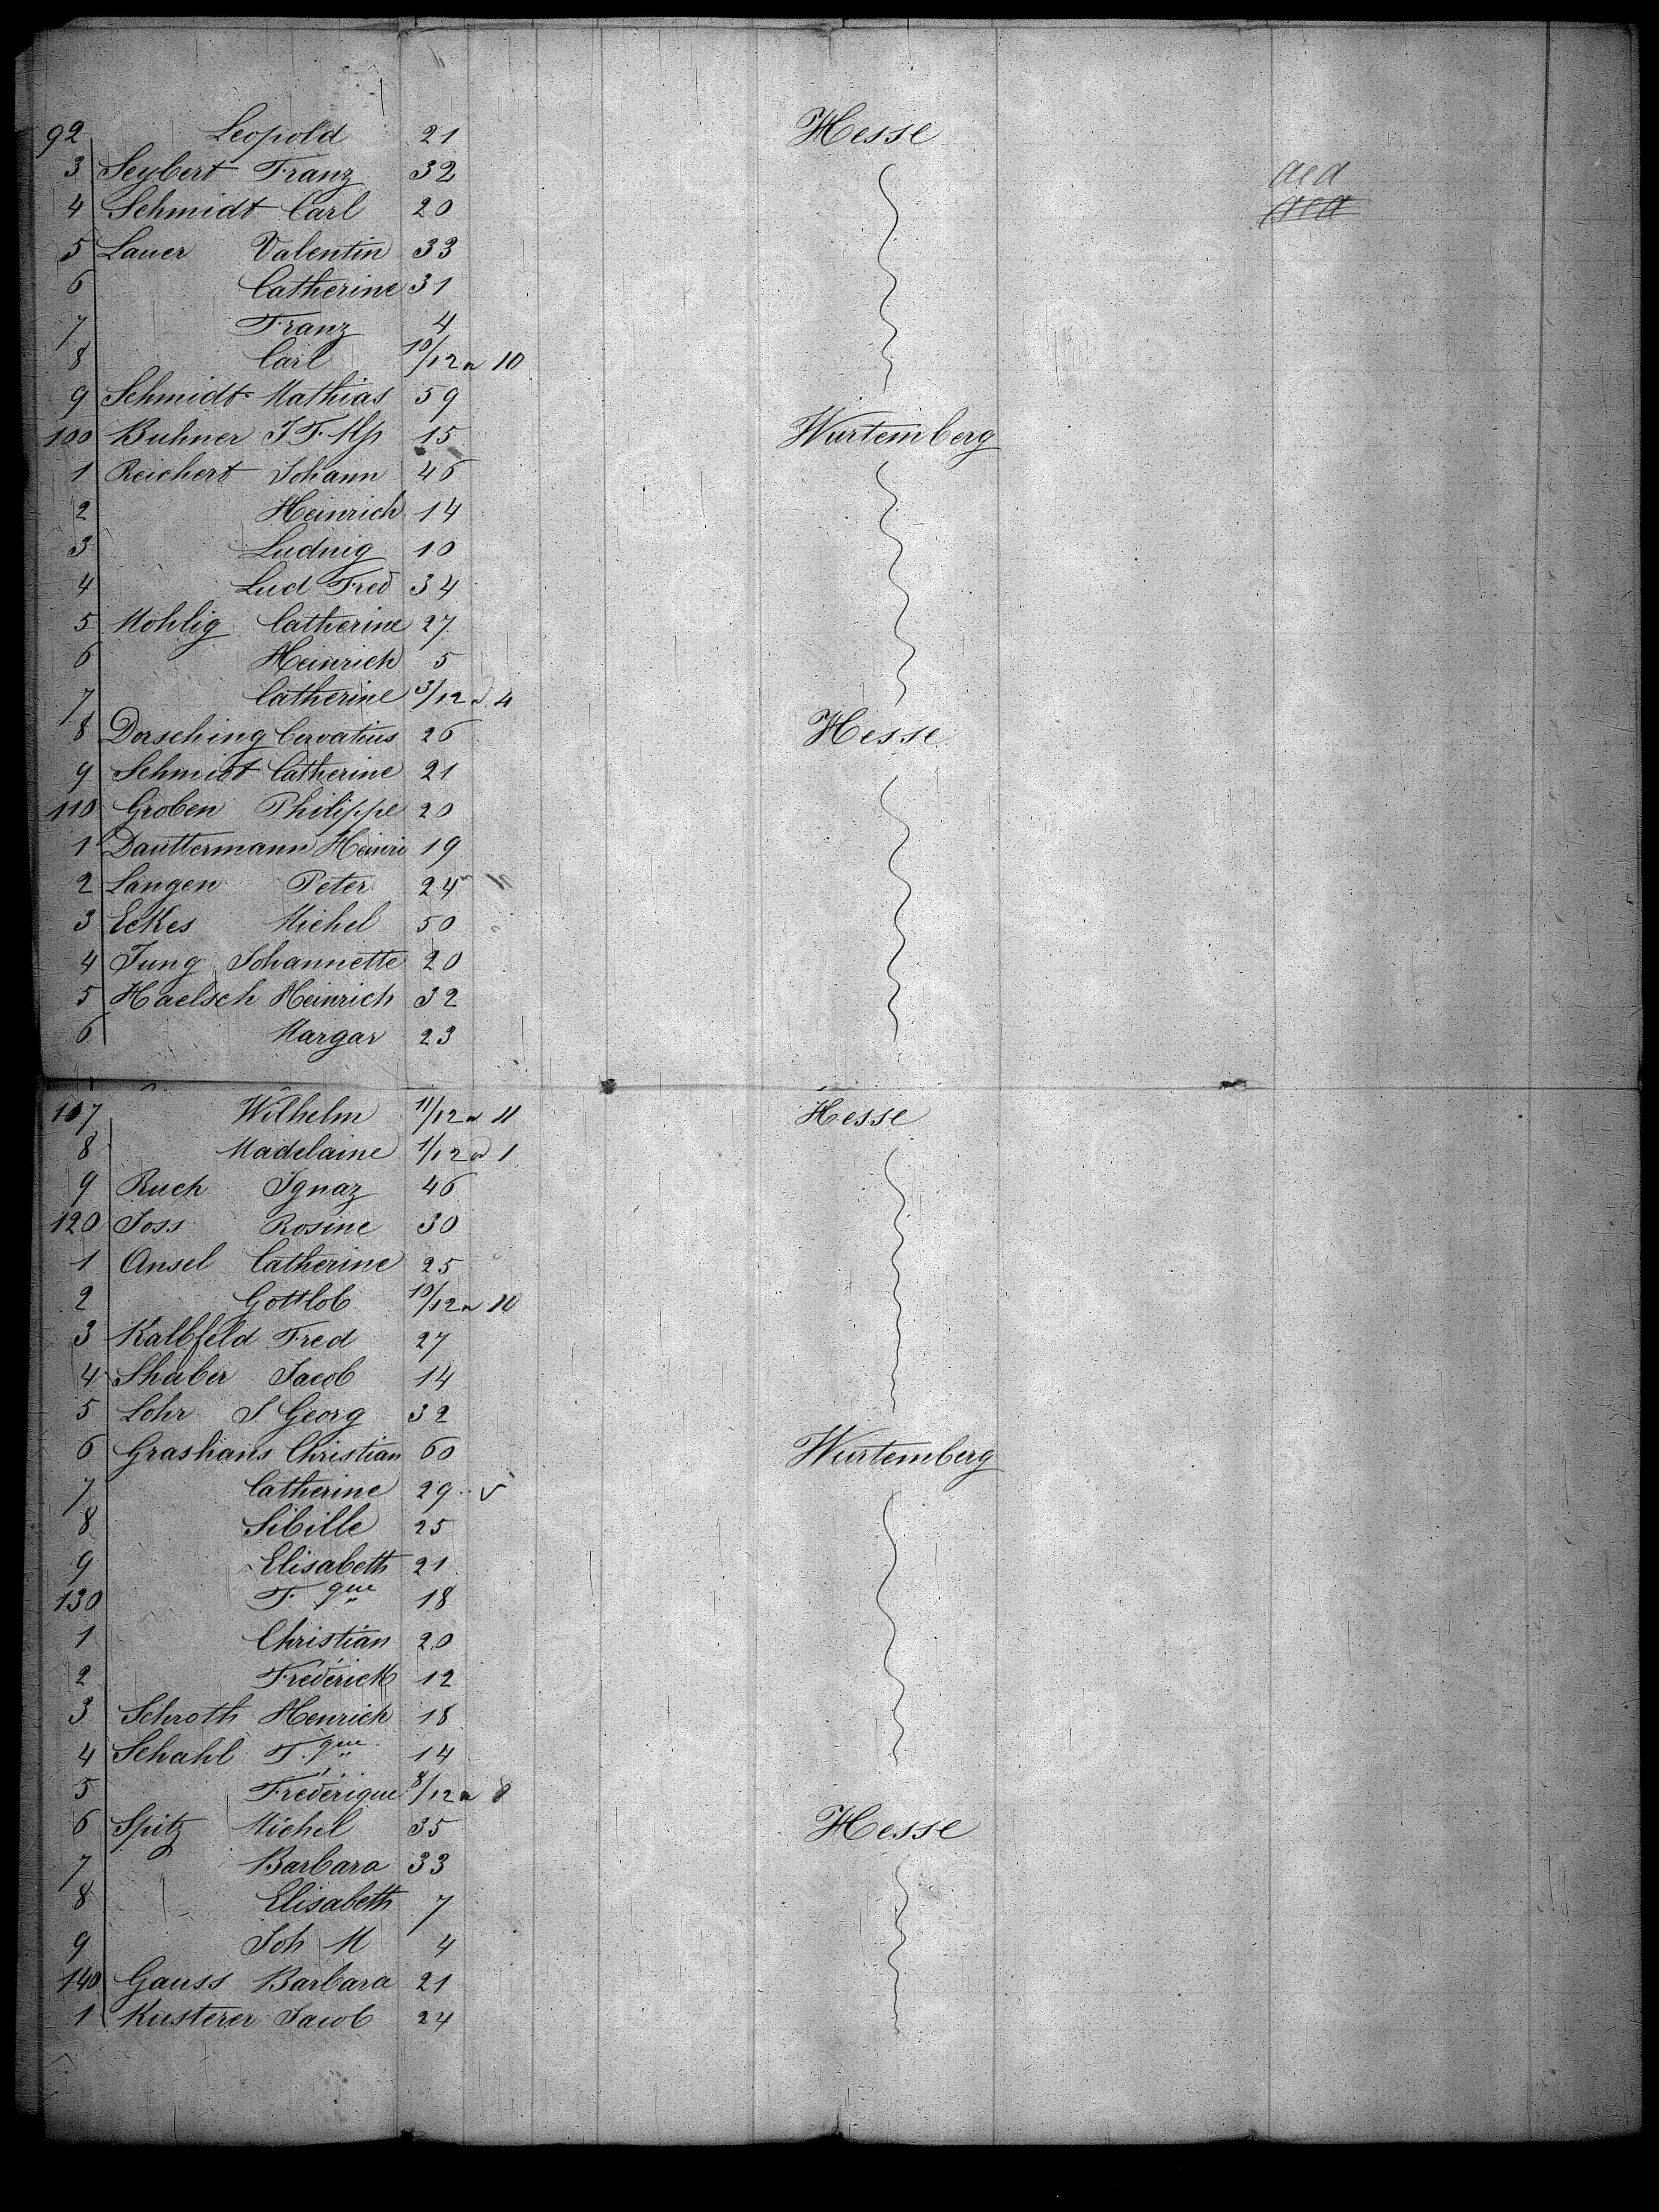 92 Leopold 21 Hesse
3 Seybert Franz 32 ded
4 Schmidt Carl 20 ded
5 Lauer Valentin 33
6 Catherine 31
7 Franz 4
8 Carl 10/12 a 10
9 Schmidt Mathias 59
100 Buhner J. F. 15 Wurtemberg
1 Reichert Johann 46
2 Heinrich 14
3 Ludwig 10
4 Lud Fred 34
5 Mohlig Catherine 27
6 Heinrich 5
7 Catherine 3/12 4
8 Dorsching Cervatius 26 Hesse
9 Schmidt Catherine 21
110 Groben Philippe 20
1 Dauttermann Heinri 19
2 Langen Peter 24
3 Eckes Michel 50
4 Jung Johannette 20
5 Haelsch Heinrich 32
6 Margar 23
117 Wilhelm 11/12 a 11 Hesse
8 Madelaine 1/12 a 1
9 Ruch Ignaz 46
120 Joss Rosine 30
1 Ansel Catherine 25
2 Gottlob 10/12 a 10
3 Kalbfeld Fred 27
4 Shaber Jacob 14
5 Lohr J Georg 32
6 Grashans Christian 60 Wurtemberg
7 Catherine 29
8 Sibille 25
9 Elisabeth 21
130 F. que 18
1 Christian 20
2 Fréderick 12
3 Schroth Henrich 18
4 Schahl F. que 14
5 Fréderique 8/12 a 8
6 Spitz Michel 35 Hesse
7 Barbara 33
8 Elisabeth 7
9 Joh M 4
140 Gauss Barbara 21
1 Kusterer Jacob 24